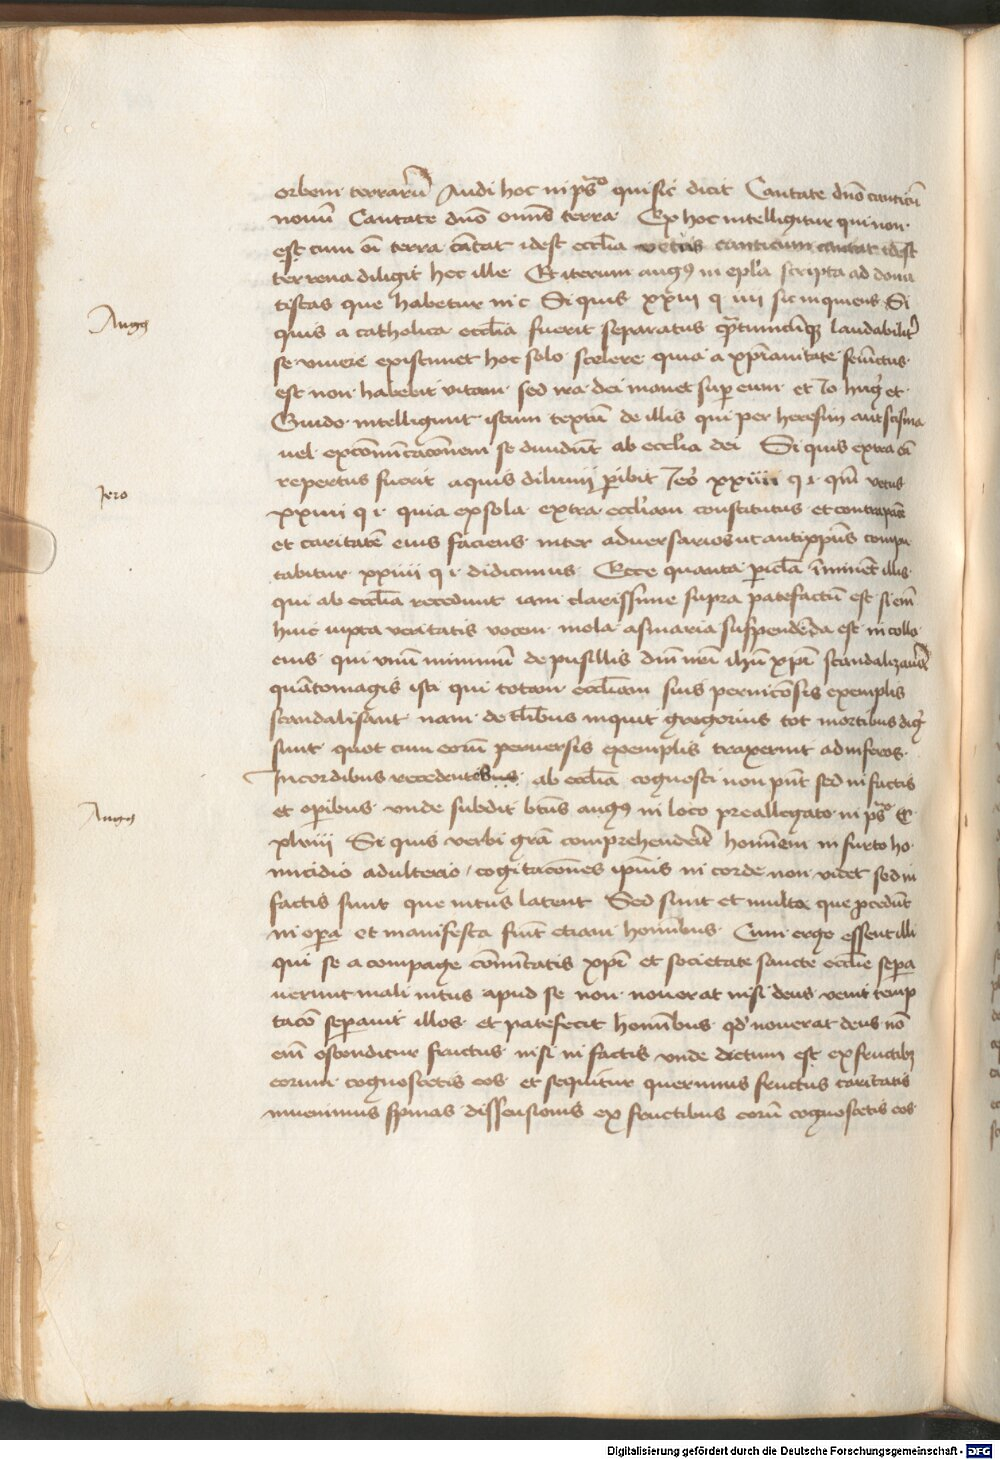 orbem terrarū Audi hoc in psͦ qui sic dicit Cantate dno canticū
nouū Cantate dno omis terra Ex hoc intelligitur qui non
est cum oi terra cātat idest ecclia vetus canticum cantat idest
terrena diligit hec ille Et iterum augꝰ in epla scripta ad dona
tistas que habetur in c Si quis xxiii q iiii sic inquiens Si
Augꝰ
quis a catholica ecclia fuerit separatus q̄tumcūqꝫ laudabilit
se viuere existimet hoc solo scelere quia a xpianitate seiūctus
est non habebit vitam sed ira dei manet super eum et Io hug et
Guido intelligunt istum textū de illis qui per heresim aut scisma
uel excōmūicacōnem se diuidūt ab ecclia dei Si quis extra oī
repertus fuerit aquis diluuii peribit Iero xxiiii q i qm vetus
Iero
xxiiii q i quia ex sola extra eccliam constitutus et contra pacē
et caritatē eius faciens inter aduersarios ut antixpus compu
tabitur xxiiii q i didicimus Ecce quanta picla īminēt illis
qui ab ecclia recedunt iam clarissime supra patefactū est si em
huic iuxta veritatis vocem mola asinaria suspendēda est in collo
eius qui vnū minimū de pusillis dni nri ihu xpi scandalizauit
quātomagis isti qui totam eccliam suis perniciosis exemplis
scandalisant nam de talibus inquit gregorius tot mortibus digi
sunt quot cum eorū peruersis exemplis traxerint ad inferos
In cordibus recedentibus ab ecclia cognosci non pnt sed in factis
et operibus vnde subdit btus augꝰ in loco preallegato in psͦ C
Augꝰ
xlviii Si quis verbi gra comprehenderit hominem in furto ho
micidio adulterio / cogitacōnes ipius in corde non videt sed in
factis sunt que intus latent Sed sunt et multa que procedūt
in opera et manifesta sunt etiam hominibus Cum ergo essent illi
qui se a compage cōmūitatis xpi et societate sancte ecclie sepa
uerunt mali intus apud se non nouerat nisi deus venit temp
tacō separauit illos et patefecit hominibus qd nouerat deus nō
em ostenditur fructus nisi in factis vnde dictum est ex fructibꝫ
eorum cognoscetis eos et sequitur querimus fructus caritatis
inuenimus spinas dissensionis ex fructibus eorū cognoscetis eos
Digitalisierung gefördert durch die Deutsche Forschungsgemeinschaft - DFG